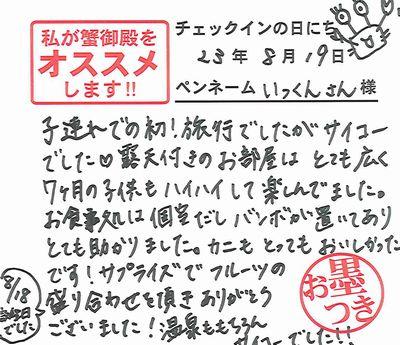 私が蟹御殿を
オススメ
します!!
チェックインの日にち
23年 8月 19日
ペンネーム いっくん さん 様
子連れでの初!旅行でしたがサイコー
でした♡露天付きのお部屋は とても広く
7ヶ月の子供も ハイハイして楽しんでました。
お食事処は個室だし バンボが置いてあり
とても助かりました。カニも とってもおいしかった
です!サプライズで フルーツの
盛り合わせを頂き ありがとう
ございました!温泉ももちろん
サイコーでした!!
8/18
誕生日
でした
お墨つき